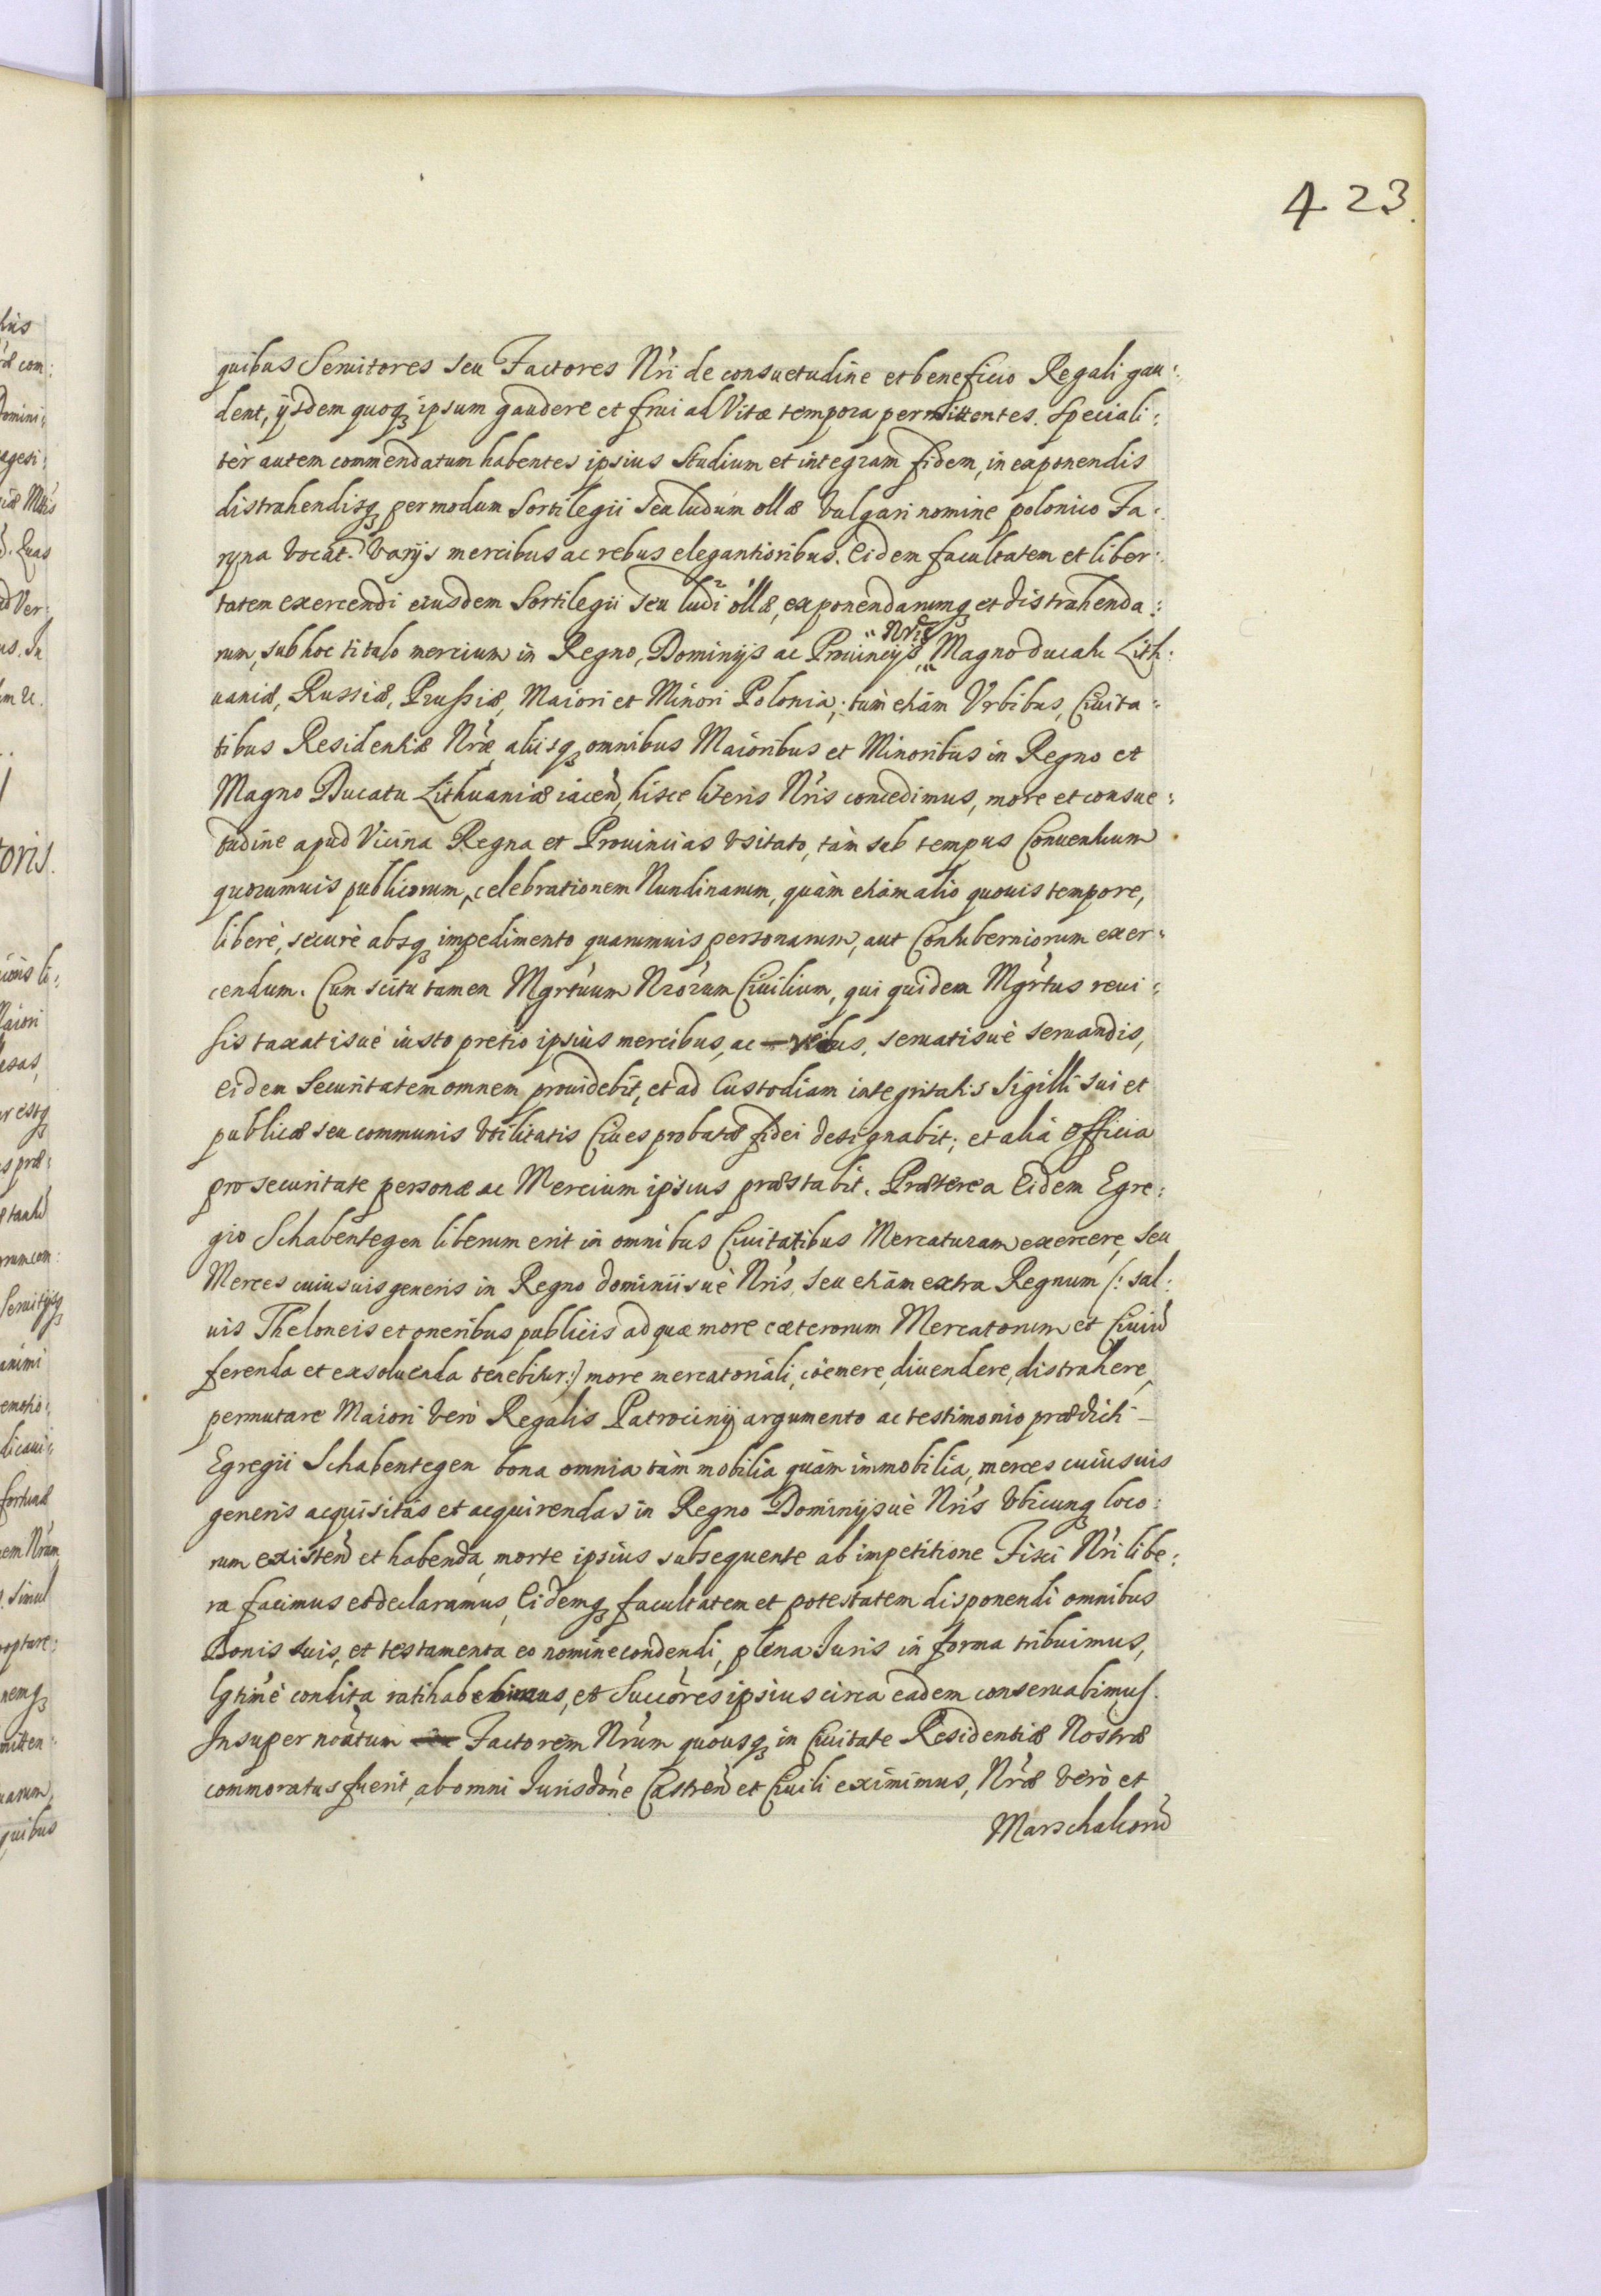 423.
quibus Seruitores seu Factores Nri de consuetudine et beneficio Regali gau:
dent, ijsdem quoq ipsum gaudere et frui ad Vitæ tempora permittentes. Speciali:
tèr autem commendatum habentes ipsius studium et integram fidem, in exponendis
distrahendisq per modum Sortilegii seu ludum ollæ vulgari nomine polonico Fa:
ryna vocat. varijs mercibus ac rebus elegantioribus. Eidem facultatem et liber:
tatem exercendi eiusdem Sortilegii seu ludi ollæ, exponendarumq et distrahenda:
rum, sub hoc titulo mercium in Regno, Dominijs ac Prouincijs Nris Magno ducatu Lith:
uaniæ, Russiæ, Prussiæ, Maiori et Minori Polonia; tùm etiàm Vrbibus, Ciuita:
tibus Residentiæ Nræ, aliisq omnibus Maioribus et Minoribus in Regno et
Magno Ducatu Lithuaniæ iacen, hisce literis Nris concedimus, more et consue:
tudine apud Vicina Regna et Prouincias vsitato, tàm sub tempus Conuentuum
quorumuis publicorum, celebrationem Nundinarum, quàm etiàm alio quouis tempore,
liberè, securè absq impedimento quarumuis personarum, aut Contuberniorum exer:
cendum. Cum scitu tamen Mgrtuum Nrorum Ciuilium, qui quidem Mgrtus reui:
sis taxatisuè iusto pretio ipsius mercibus, ac rebus, seruatisuè seruandis,
eidem Securitatem omnem prouidebit, et ad Custodiam integritatis Sigilli sui et
publicæ seu communis vtilitatis Ciues probatæ fidei designabit; et alia officia
pro securitate personæ ac Mercium ipsius præstabit. Præterea Eidem Egre:
gio Schabentegen liberum erit in omnibus Ciuitatibus Mercaturam exercere, seu
Merces cuiusuis generis in Regno dominiisuè Nris, seu etiàm extra Regnum (: sal:
uis Theloneis et oneribus publicis ad quæ more cæterorum Mercatorum et Ciuiu
ferenda et exsoluenda tenebitur:) more mercatoriali, coemere, diuendere, distrahere,
permutare Maiori verò Regalis Patrocinij argumento ac testimonio prædicti
Egregii Schabentegen bona omnia tàm mobilia quàm immobilia, merces cuiusuis
generis acquisitas et acquirendas in Regno Dominijsuè Nris vbicunq loco:
rum existen et habenda, morte ipsius subsequente ab impetitione Fisci Nri libe:
ra facimus et declaramus, Eidemq facultatem et potestatem disponendi omnibus
Bonis suis, et testamenta eo nomine condendi, plena Iuris in forma tribuimus,
lgtimè condita ratihabebimus, et Succores ipsius circa eadem conseruabimus.
Insuper noatum Factorem Nrum quousq in Ciuitate Residentiæ Nostræ
commoratus fuerit, ab omni Jurisdone Castren et Ciuili eximimus, Nræ verò et
Marschalcoru